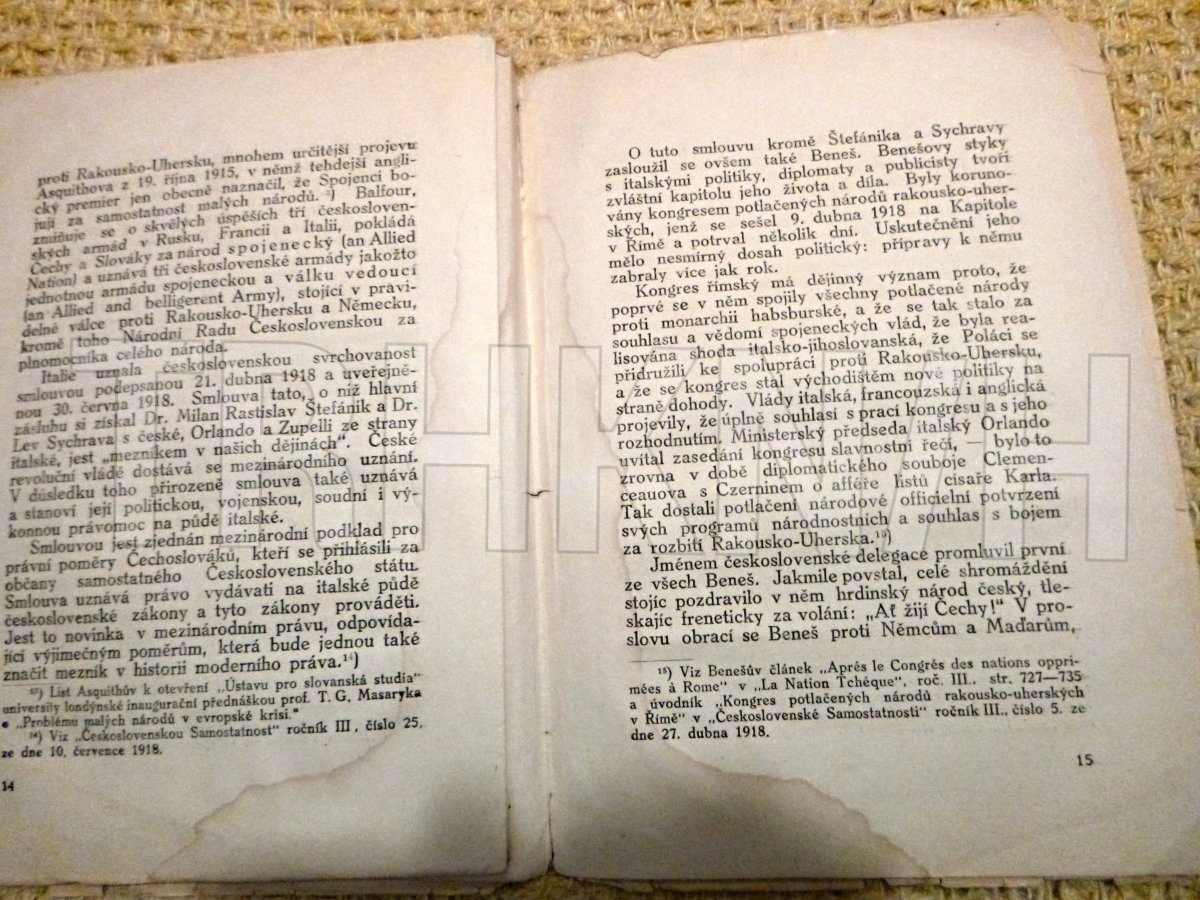 proti Rakousko-Uhersku, mnohem určitější projevu
Asquithova z 19. října 1915, v němž tehdejší angli-
cký premier jen obecně naznačil, že Spojenci bo-
jují za samostatnost malých národů. ¹³) Balfour,
zmiňuje se o skvělých úspěších tří českosloven-
ských armád v Rusku, Francii a Italii, pokládá
Čechy a Slováky za národ spojenecký (an Allied
Nation) a uznává tři československé armády jakožto
jednotnou armádu spojeneckou a válku vedoucí
(an Allied and belligerent Army), stojící v pravi-
delné válce proti Rakousko-Uhersku a Německu,
kromě toho Národní Radu Československou za
plnomocníka celého národa.
Italie uznala československou svrchovanost
smlouvou podepsanou 21. dubna 1918 a uveřejně-
nou 30. června 1918. Smlouva tato, o niž hlavní
zásluhu si získal Dr. Milan Rastislav Štefánik a Dr.
Lev Sychrava s české, Orlando a Zupelli ze strany
italské, jest „mezníkem v našich dějinách“. České
revoluční vládě dostává se mezinárodního uznání.
V důsledku toho přirozeně smlouva také uznává
a stanoví její politickou, vojenskou, soudní i vý-
konnou právomoc na půdě italské.
Smlouvou jest zjednán mezinárodní podklad pro
právní poměry Čechoslováků, kteří se přihlásili za
občany samostatného Československého státu.
Smlouva uznává právo vydávati na italské půdě
československé zákony a tyto zákony prováděti.
Jest to novinka v mezinárodním právu, odpovída-
jící výjimečným poměrům, která bude jednou také
značit mezník v historii moderního práva.¹⁴)
¹³) List Asquithův k otevření „Ústavu pro slovanská studia“
university londýnské inaugurační přednáškou prof. T. G. Masaryka
„Problému malých národů v evropské krisi.“
¹⁴) Viz „Československou Samostatnost“ ročník III, číslo 25.
ze dne 10. července 1918.
14
O tuto smlouvu kromě Štefánika a Sychravy
zasloužil se ovšem také Beneš. Benešovy styky
s italskými politiky, diplomaty a publicisty tvoří
zvláštní kapitolu jeho života a díla. Byly koruno-
vány kongresem potlačených národů rakousko-uher-
ských, jenž se sešel 9. dubna 1918 na Kapitole
v Římě a potrval několik dní. Uskutečnění jeho
mělo nesmírný dosah politický: přípravy k němu
zabraly více jak rok.
Kongres římský má dějinný význam proto, že
poprvé se v něm spojily všechny potlačené národy
proti monarchii habsburské, a že se tak stalo za
souhlasu a vědomí spojeneckých vlád, že byla rea-
lisována shoda italsko-jihoslovanská, že Poláci se
přidružili ke spolupráci proti Rakousko-Uhersku,
a že se kongres stal východištěm nové politiky na
straně dohody. Vlády italská, francouzská i anglická
projevily, že úplně souhlasí s prací kongresu a s jeho
rozhodnutím. Ministerský předseda italský Orlando
uvítal zasedání kongresu slavnostní řečí, — bylo to
zrovna v době diplomatického souboje Clemen-
ceauova s Czerninem o afféře listů císaře Karla.
Tak dostali potlačení národové officielní potvrzení
svých programů národnostních a souhlas s bojem
za rozbití Rakousko-Uherska.¹⁵)
Jménem československé delegace promluvil první
ze všech Beneš. Jakmile povstal, celé shromáždění
stojíc pozdravilo v něm hrdinský národ český, tle-
skajíc freneticky za volání: „Ať žijí Čechy!“ V pro-
slovu obrací se Beneš proti Němcům a Maďarům,
¹⁵) Viz Benešův článek „Aprés le Congrés des nations oppri-
mées à Rome“ v „La Nation Tchéque“, roč. III., str. 727—735
a úvodník „Kongres potlačených národů rakousko-uherských
v Římě“ v „Československé Samostatnosti“ ročník III., číslo 5. ze
dne 27. dubna 1918.
15